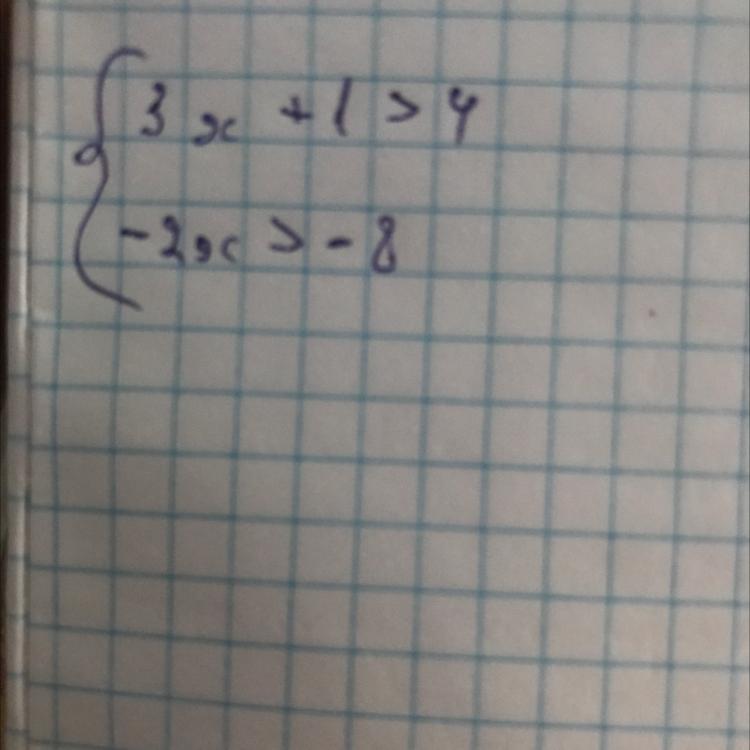 3x + 1 > 4
-2x > -8